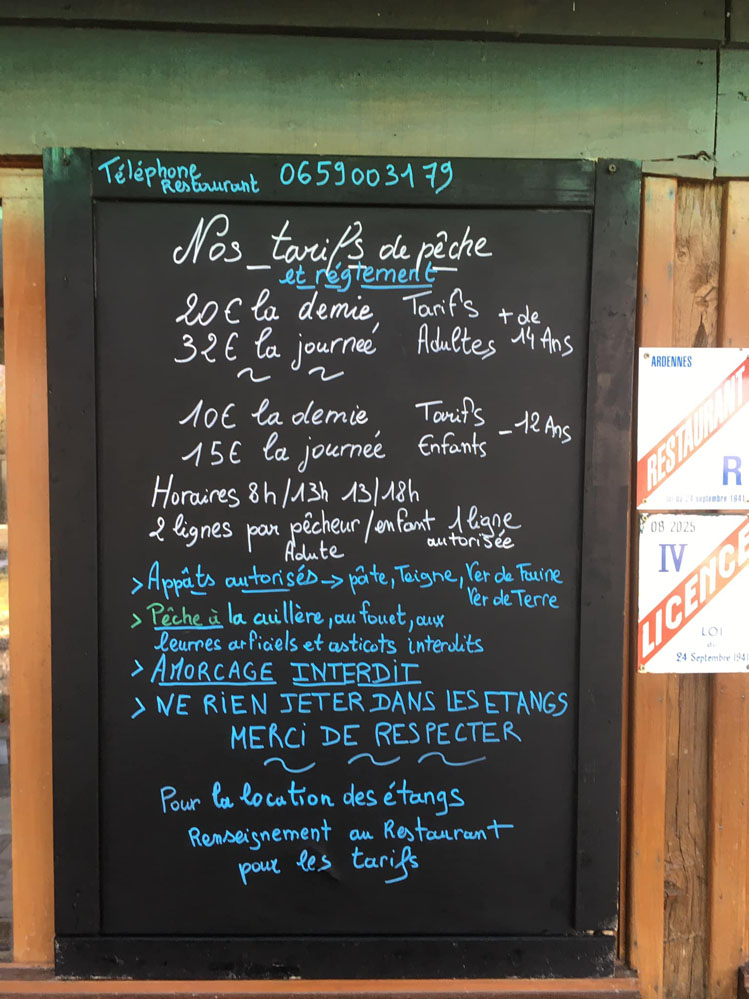 Téléphone Restaurant 0659003179
Nos tarifs de pêche
et réglement
20€ la demie Tarifs + de
32€ la journeé Adultes 14 Ans
10€ la demie Tarifs - 12 Ans
15€ la journeé Enfants
Horaires 8h/13h 13/18h
2 lignes par pêcheur/enfant 1 ligne
Adute autorisée
> Appâts autorisés → pâte, Teigne, Ver de Farine
Ver de Terre
> Pêche à la cuillère, au fouet, aux
leurres arficiels et asticots interdits
> AMORCAGE INTERDIT
> NE RIEN JETER DANS LES ETANGS
MERCI DE RESPECTER
Pour la location des étangs
Renseignement au Restaurant
pour les tarifs
ARDENNES
RESTAURANT
R
Loi du 24 septembre 1941
08 2025
IV
LICENCE
LOI
du
24 Septembre 1941